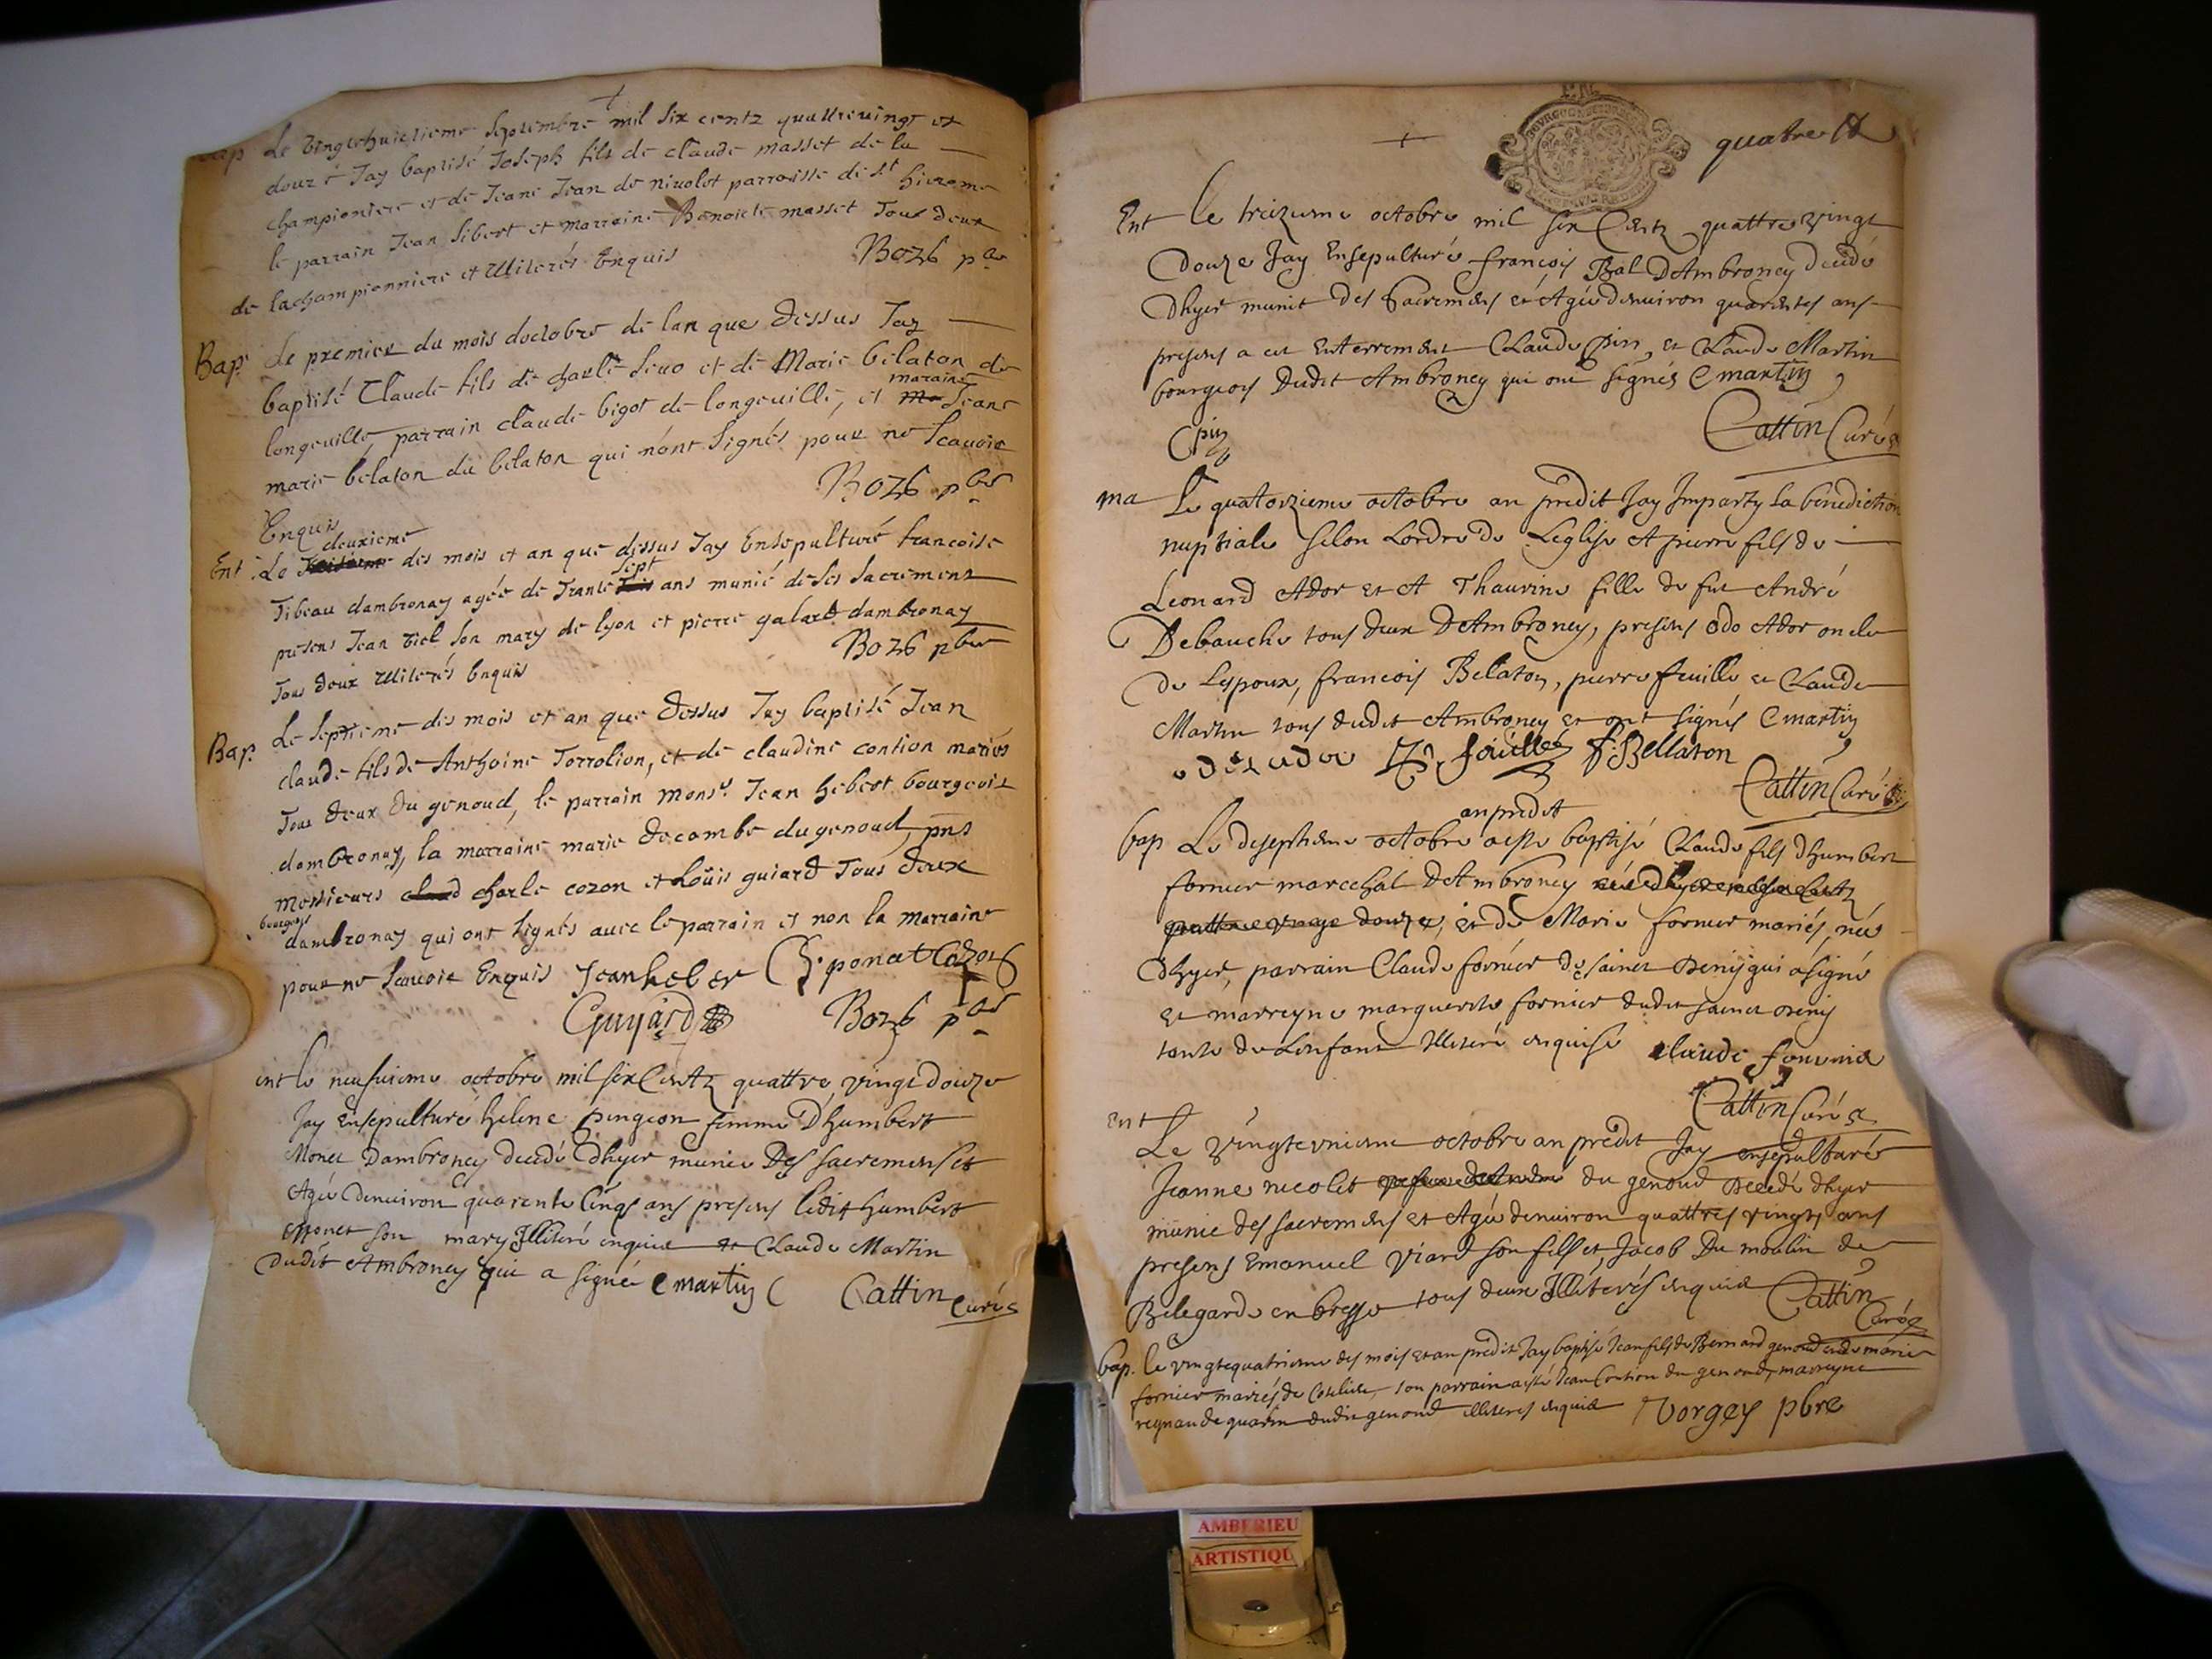 Bap Le vingthuictieme septembre mil six centz quattrevingt et
douze Jay baptisé Joseph fils de claude masset de la
championiere et de Jeane Jean de nivolet parroisse de st hierome
le parrain Jean Sibert et marraine Benoiete masset Tous deux
de lachampionniere et Illiterés Enquis Bozo pbre
Bap. Le premier du mois doctobre de lan que dessus Jay
baptisé Claude fils de charle Seuo et de Marie belaton de
longeville, parrain claude bigot de longeuille, et maraine Jeane
marie belaton du belaton qui n'ont signés pour ne scauoir
Enquis Bozo pbre
Ent. Le deuxieme des mois et an que dessus Jay Ensepulturé francoise
Tibeau dambronay agée de Trante sept ans munié de ses sacrements
presens Jean viel son mary de lyon et pierre galard dambronay
Tous deux Illiterés Enquis Bozo pbre
Bap. Le septieme des mois et an que dessus Jay baptisé Jean
claude fils de Anthoine Torrolion, et de claudine contion mariés
Tous deux du genoud, le parrain monsr. Jean hebert bourgeois
dambronay, la marraine marie decombe du genoud, pns
messieurs charle cozon et Loüis guiard Tous deux
bourgeois
dambronay qui ont signés auec le parrain et non la marraine
pour ne scauoir Enquis Jean heber C. ponat Cozon
Guyard Bozo pbre
ent le neufuieme octobre mil six Centz quattre vingt douze
Jay Ensepulturé helene pingeon femme D'humbert
Monet Dambroney decedé Dhyer munie Des sacremens et
Agée Denuiron quarente Cinqs ans presens ledit humbert
Monet son mary Illiteré enquis et Claude Martin
Dudit Ambroney qui a signé C martin Cattin curé
quatre
Ent le treizieme octobre mil six Centz quattre vingt
Douze Jay Ensepulturé françois Bal DAmbroney decedé
Dhyer munit des Sacremens et Agée denuiron quarentes ans
presens a cet Enterrement Claude Pin, et Claude Martin
bourgeois Dudit Ambroney qui ont signés C martin
C pin Cattin Curé
ma Le quatorzieme octobre an prédit Jay Imparty La bénédiction
nuptiale selon Lordre de Leglise A pierre fils de
Leonard Ador et A Thaurine fille de fut André
Debauche tous deux DAmbroney, presens odo Ador oncle
de Lespoux, francois Belaton, pierre feuille et Claude
Martin tous dudit Ambroney et ont signés C martin
P. foüillé f. Bellaton
Cattin Curé
an predit
bap Le diseptieme octobre a esté baptisé Claude fils dhumbert
fornier marechal DAmbroney
quattre vingt douze, et de Marie fornier mariés, née
Dhyer, parrain Claude fornier de sainct Denij qui a signé
et marreyne marguerite fornier dudit sainct Denij
tante de Lenfant Illiteré enquise claude fournier
Cattin Curé
Ent Le Vingtevnieme octobre an predit Jay ensepulturé
Jeanne nicolet du genoud Decedé dhyer
munie des sacremens et Agée denuiron quattres vingts ans
presens Emanuel Viard son fils et Jacob Du moulin de
Belegarde en bresse tous deux Illiterés enquis Cattin
Curé
bap. le vingtequatrieme des mois et an predit Jay baptisé Jean fils de Bernard genoud et de marie
fornier mariés de , son parrain a esté Jean Contion du genoud, marreyne
reynaude guarin dudit genoud illiteres enquis Vorgey pbre
AMBERIEU
ARTISTIQU